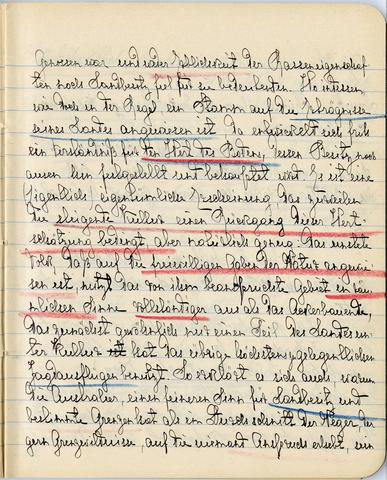 Genossen war und oder Ursächlichkeit der Rasseneigenschaf
ten noch Landbesitz fiel für sie bedeutenden. Wo indessen,
wie doch in der Regel ein Stamm auf die Erzeugnisse
seines Landes angewiesen ist, da entwickelt sich früh
ein Verständnis für den Wert des Bodens, dessen Besitz nach
aussen hin festgestellt und behauptet wird. Es ist eine
(eigentlich) eigenthümliche Erscheinung, dass zuweilen
die steigende Kultur einen Rückgang dieser Wert-
schätzung bedingt, aber natürlich genug. Das unstete
Volk, dass auf die freiwilligen Gaben der Natur angewie
sen ist, nutzt das von ihm beanspruchte Gebiet in räum
lichem Sinne vollständiger aus als das Ackerbauende,
das zunächst gewöhnlich nur einen Teil des Landes un
ter Kultur hat das übrige höchstens gelegentlichen
Jagdausflügen benutzt. So erklärt es sich auch, warum
die Australier, einen feineren Sinn für Landbesitz und
bestimmte Grenzen hat als im Durchschnitt der Neger, der
gern Grenzwildnisse, auf die niemand Anspruch erhebt, sein